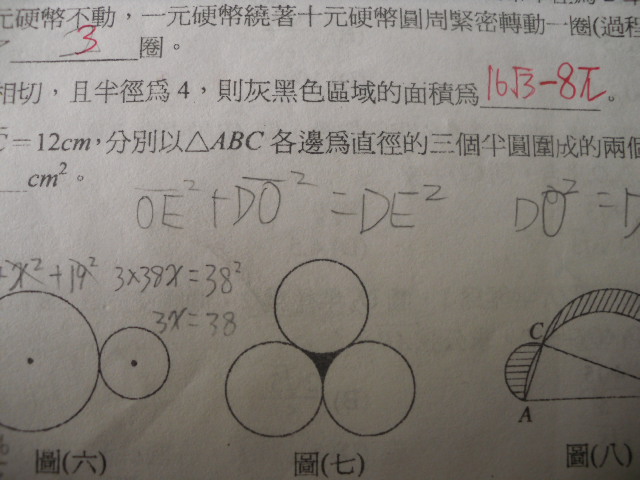 元硬幣不動，一元硬幣繞著十元硬幣圓周緊密轉動一圈(過程
3 圈。
相切，且半徑為4，則灰黑色區域的面積為 16√3-8π 。
=12cm，分別以△ABC各邊為直徑的三個半圓圍成的兩個
cm²。
OE²+DO²=DE² DO²=
x²+19² 3×38x=38²
3x=38
C
A
圖(六) 圖(七) 圖(八)